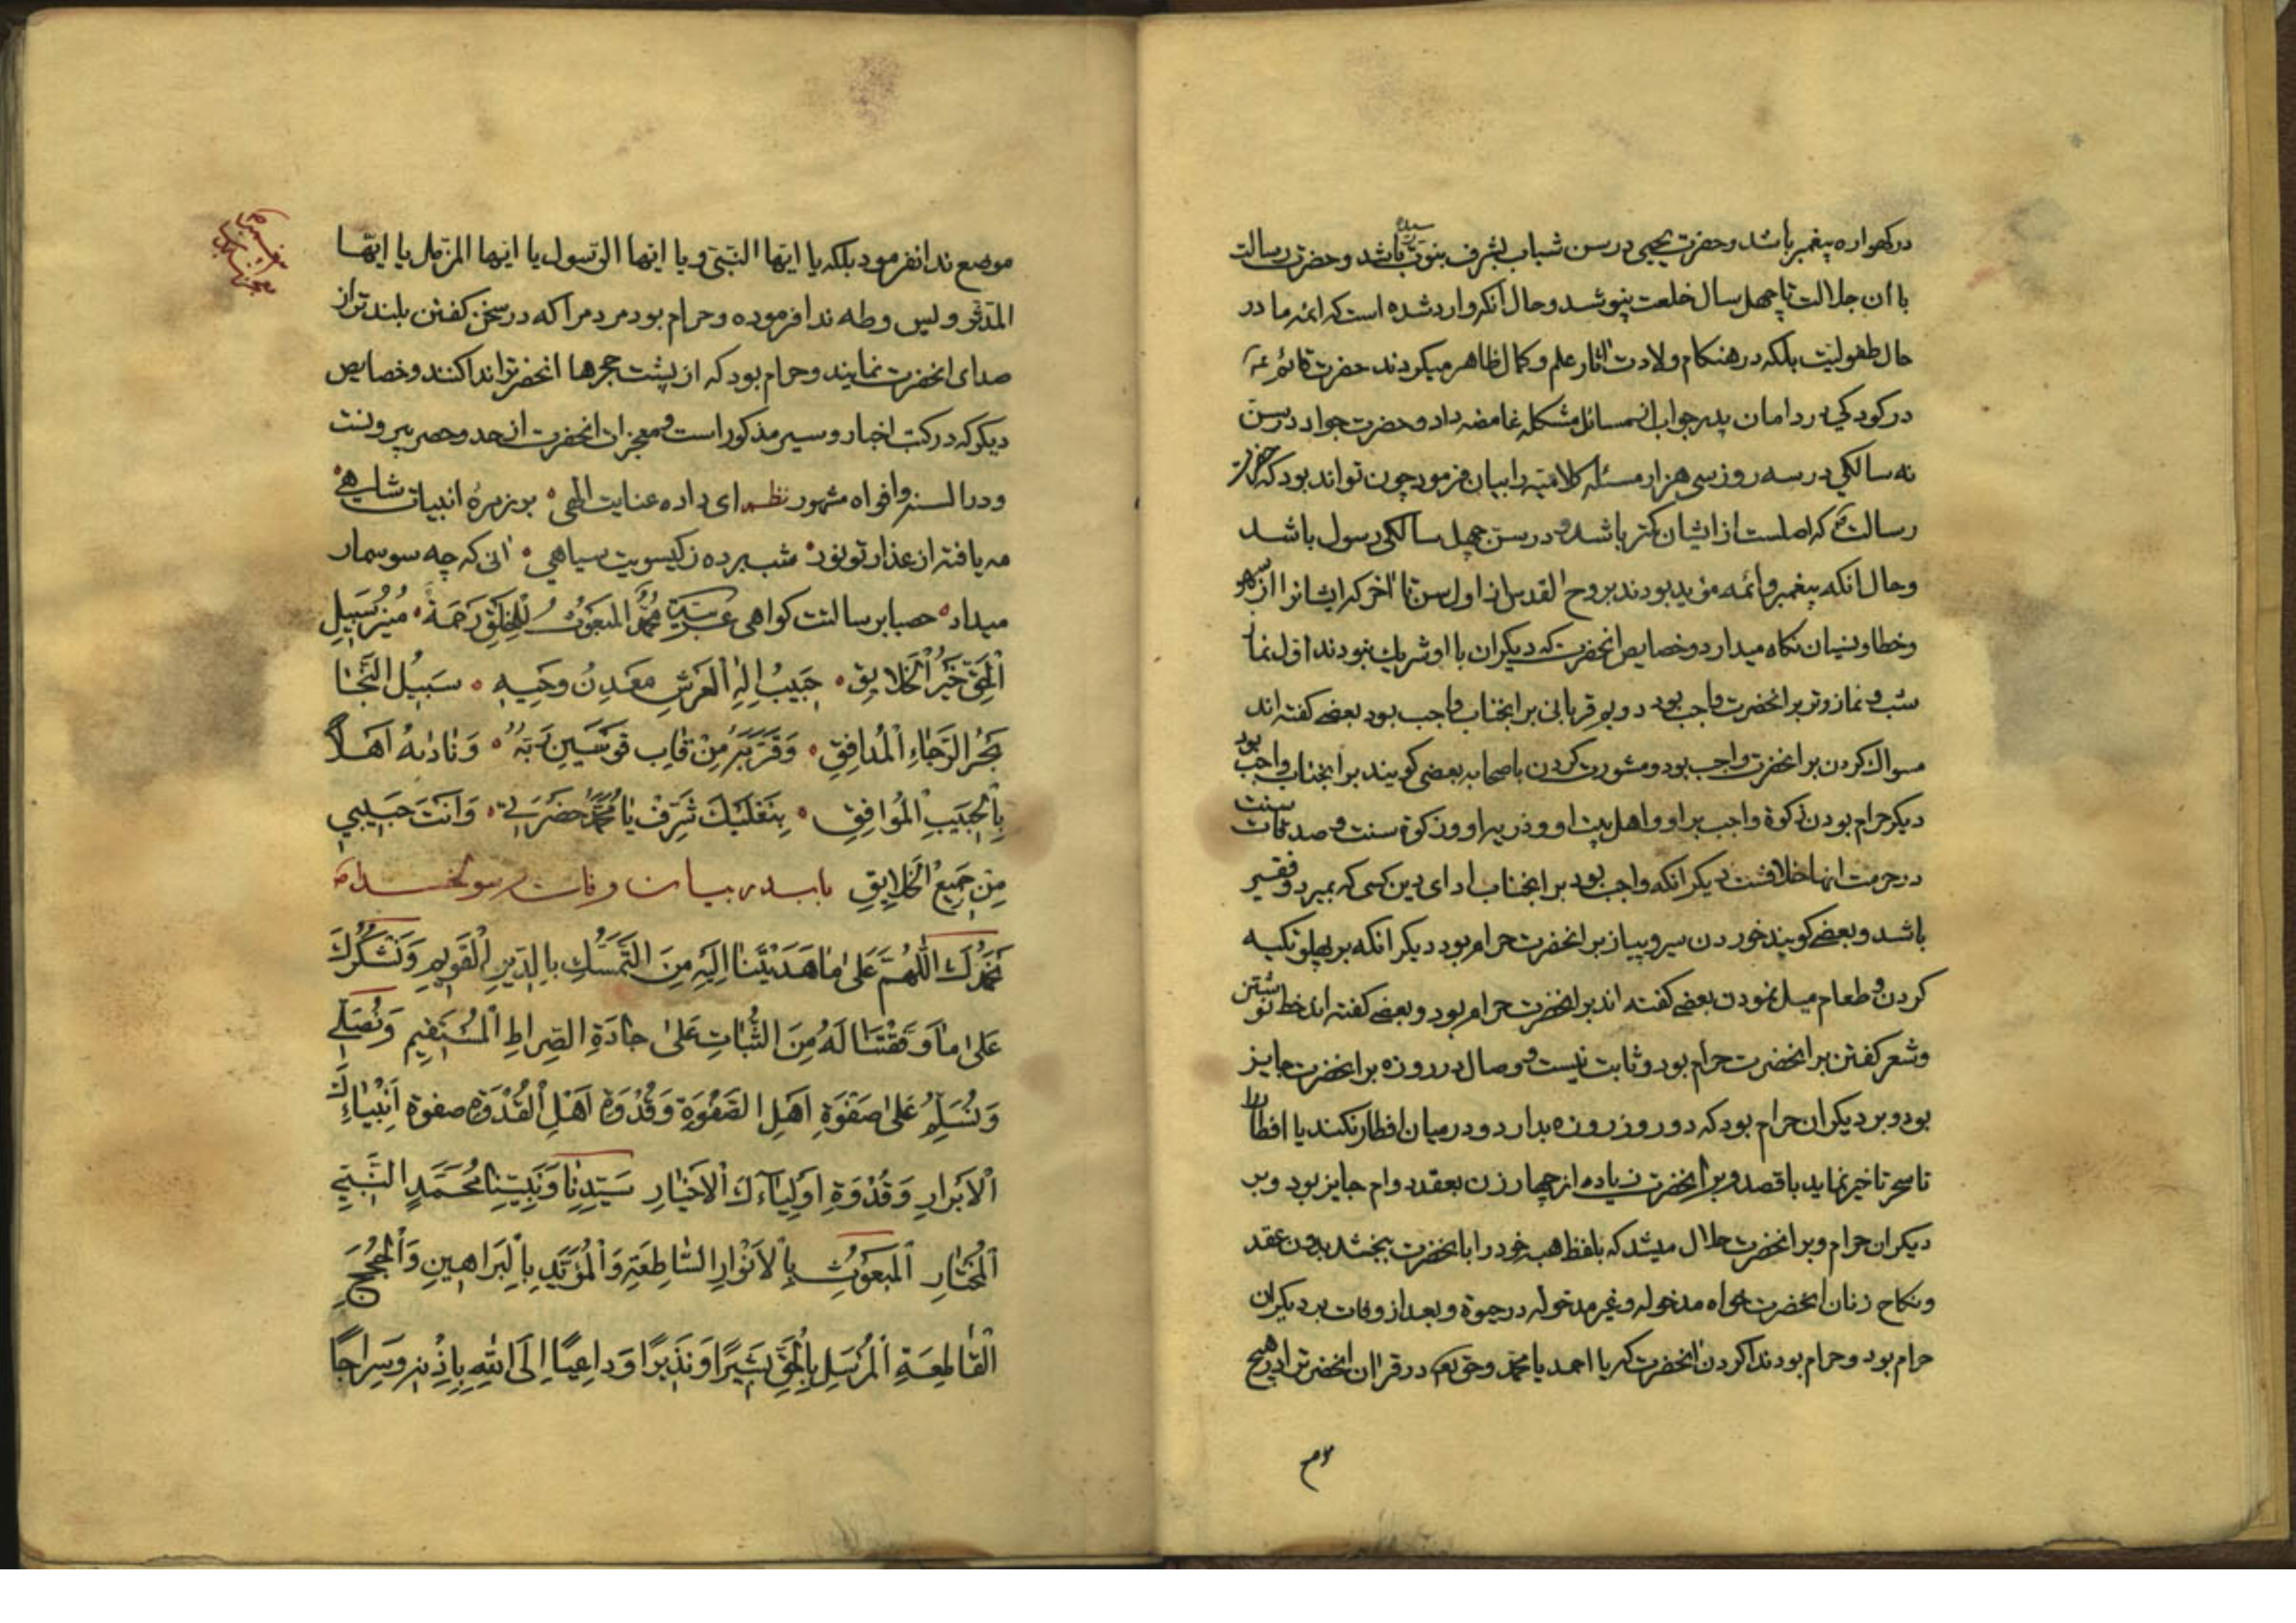 در کهواره پیغمبر باشد و حضرت یحیی در سن شباب بشرف نبوت رسیده باشد و حضرت رسالت
با ان جلالت تا چهل سال خلعت نپوشد و حال آنکه وارد شده است که ائمه ما در
حال طفولیت بلکه در هنکام ولادت اثار علم و کمال ظاهر میکردند حضرت قائم
در کودکی در دامان پدر جواب از مسائل مشکله غامضه داد و حضرت جواد در سن
نه سالکی در سه روز سی هزار مسئله کلامیه را بیان فرمود چون تواند بود که حضرت
رسالت که اصلست از ایشان کمتر باشد و در سن چهل سالکی رسول باشد
و حال انکه پیغمبر و ائمه مؤید بودند بروح القدس از اول سن تا اخر که ایشانرا از سهو
و خطا و نسیان نکاه میدارد و خصایص انحضرت که دیکران با او شریک نبودند اول نماز
شب و نماز وتر بر انحضرت واجب بود دویم قربانی بر انجناب واجب بود بعضے کفته اند
مسواک کردن بر انحضرت واجب بود و مشورت کردن با صحابه بعضی کویند بر انجناب واجب بود
دیکر حرام بودن زکوة واجب بر او و اهل بیت او و ذریه او و زکوة سنت و صدقات سنت
در حرمت انها خلافست دیکر انکه واجب بود بر انجناب ادای دین کسی که بمیرد و فقیر
باشد و بعضے کویند خوردن سیر و پیاز بر انحضرت حرام بود دیکر انکه بر پهلو تکیه
کردن و طعام میل نمودن بعضے کفته اند بر انحضرت حرام بود و بعضے کفته اند خط نوشتن
و شعر کفتن بر انحضرت حرام بود و ثابت نیست و وصال در روزه بر انحضرت جایز
بود و بر دیکران حرام بود که دو روز روزه بدارد و در میان افطار نکند یا افطار را
تا سحر تاخیر نماید با قصد و بر انحضرت زیاده از چهار زن بعقد دوام جایز بود و بر
دیکران حرام و بر انحضرت حلال میشد که بلفظ هبه خود را با انحضرت ببخشد بدون عقد
و نکاح زنان انحضرت خواه مدخوله و غیر مدخوله در حیوة و بعد از وفات بر دیکران
حرام بود و حرام بود ندا کردن انحضرت که یا احمد یا محمد و حق تع در قران انحضرترا در هیچ
موضع ندا نفرمود بلکه یا ایها النبی و یا ایها الرسول یا ایها المزمل یا ایها
المدثر و یس و طه ندا فرموده و حرام بود مردمرا که در سخن کفتن بلند تر از
صدای انحضرت نمایند و حرام بود که از پشت حجرها انحضرترا ندا کنند و خصایص
دیکر که در کتب اخبار و سیر مذکور است و معجزات انحضرت از حد و حصر بیرونست
و در السنه و افواه مشهور نظم ای داده عنایت الهی بر زمرهٔ انبیات شاهی
مه یافته از عذار تو نور شب برده ز کیسویت سیاهی انی که چه سوسمار
میداد حصبا برسالتت کواهی عربیة مُحَمَّدٌ المَبعُوثُ لِلْخَلْقِ رَحمَةً مُنیرُ سَبِیلِ
الْحَقِّ خَیرُ الْخَلَایِقِ حَبِیبُ اِلٰهِ الْعَرشِ مَعْدِنُ وَحْیِهِ سَبِیلُ النَّجَا
بَحْرُ الرَّجَاءِ الْمُدافِقِ وَقَرَّبَهُ مِنْ قَابِ قَوْسَینِ رَبُّهُ وَنَادٰیهُ اَهْلاً
بِالْحَبِیبِ الْمُوافِقِ بِنَعْلَیْكَ شَرِّفْ یَا مُحَمَّدُ حَضْرَتِی وَاَنْتَ حَبِیبِی
مِنْ جَمِیعِ الْخَلَایِقِ باب در بیان وفات رسولخدا ص
نَحْمَدُكَ اللّٰهُمَّ عَلیٰ مَا هَدَیْتَنَا اِلَیْهِ مِنَ التَّمَسُّكِ بِالدّینِ الْقَوِیمِ وَنَشْكُرُكَ
عَلیٰ مَا وَفَّقْتَنَا لَهُ مِنَ الثُّبَاتِ عَلیٰ جَادَّةِ الصِّرَاطِ الْمُسْتَقِیمِ وَنُصَلِّی
وَنُسَلِّمُ عَلیٰ صَفْوَةِ اَهْلِ الصَّفْوَةِ وَقُدْوَةِ اَهْلِ الْقُدْوَةِ صفوة اَنْبِیَاءِكَ
الْاَبْرَارِ وَقُدْوَةِ اَوْلِیَاءِكَ الْاَخْیَارِ سَیِّدِنَا وَنَبِیِّنَا مُحَمَّدٍ النَّبِیِّ
الْمُخْتَارِ اَلْمَبْعُوثِ بِالْاَنْوَارِ السَّاطِعَةِ وَالْمُؤَیَّدِ بِالْبَرَاهِینِ وَالْحُجَجِ
الْقَاطِعَةِ اَلْمُرْسَلِ بِالْحَقِّ بَشِیرًا وَنَذِیرًا وَدَاعِیًا اِلَی اللّٰهِ بِاِذْنِهِ وَسِرَاجًا